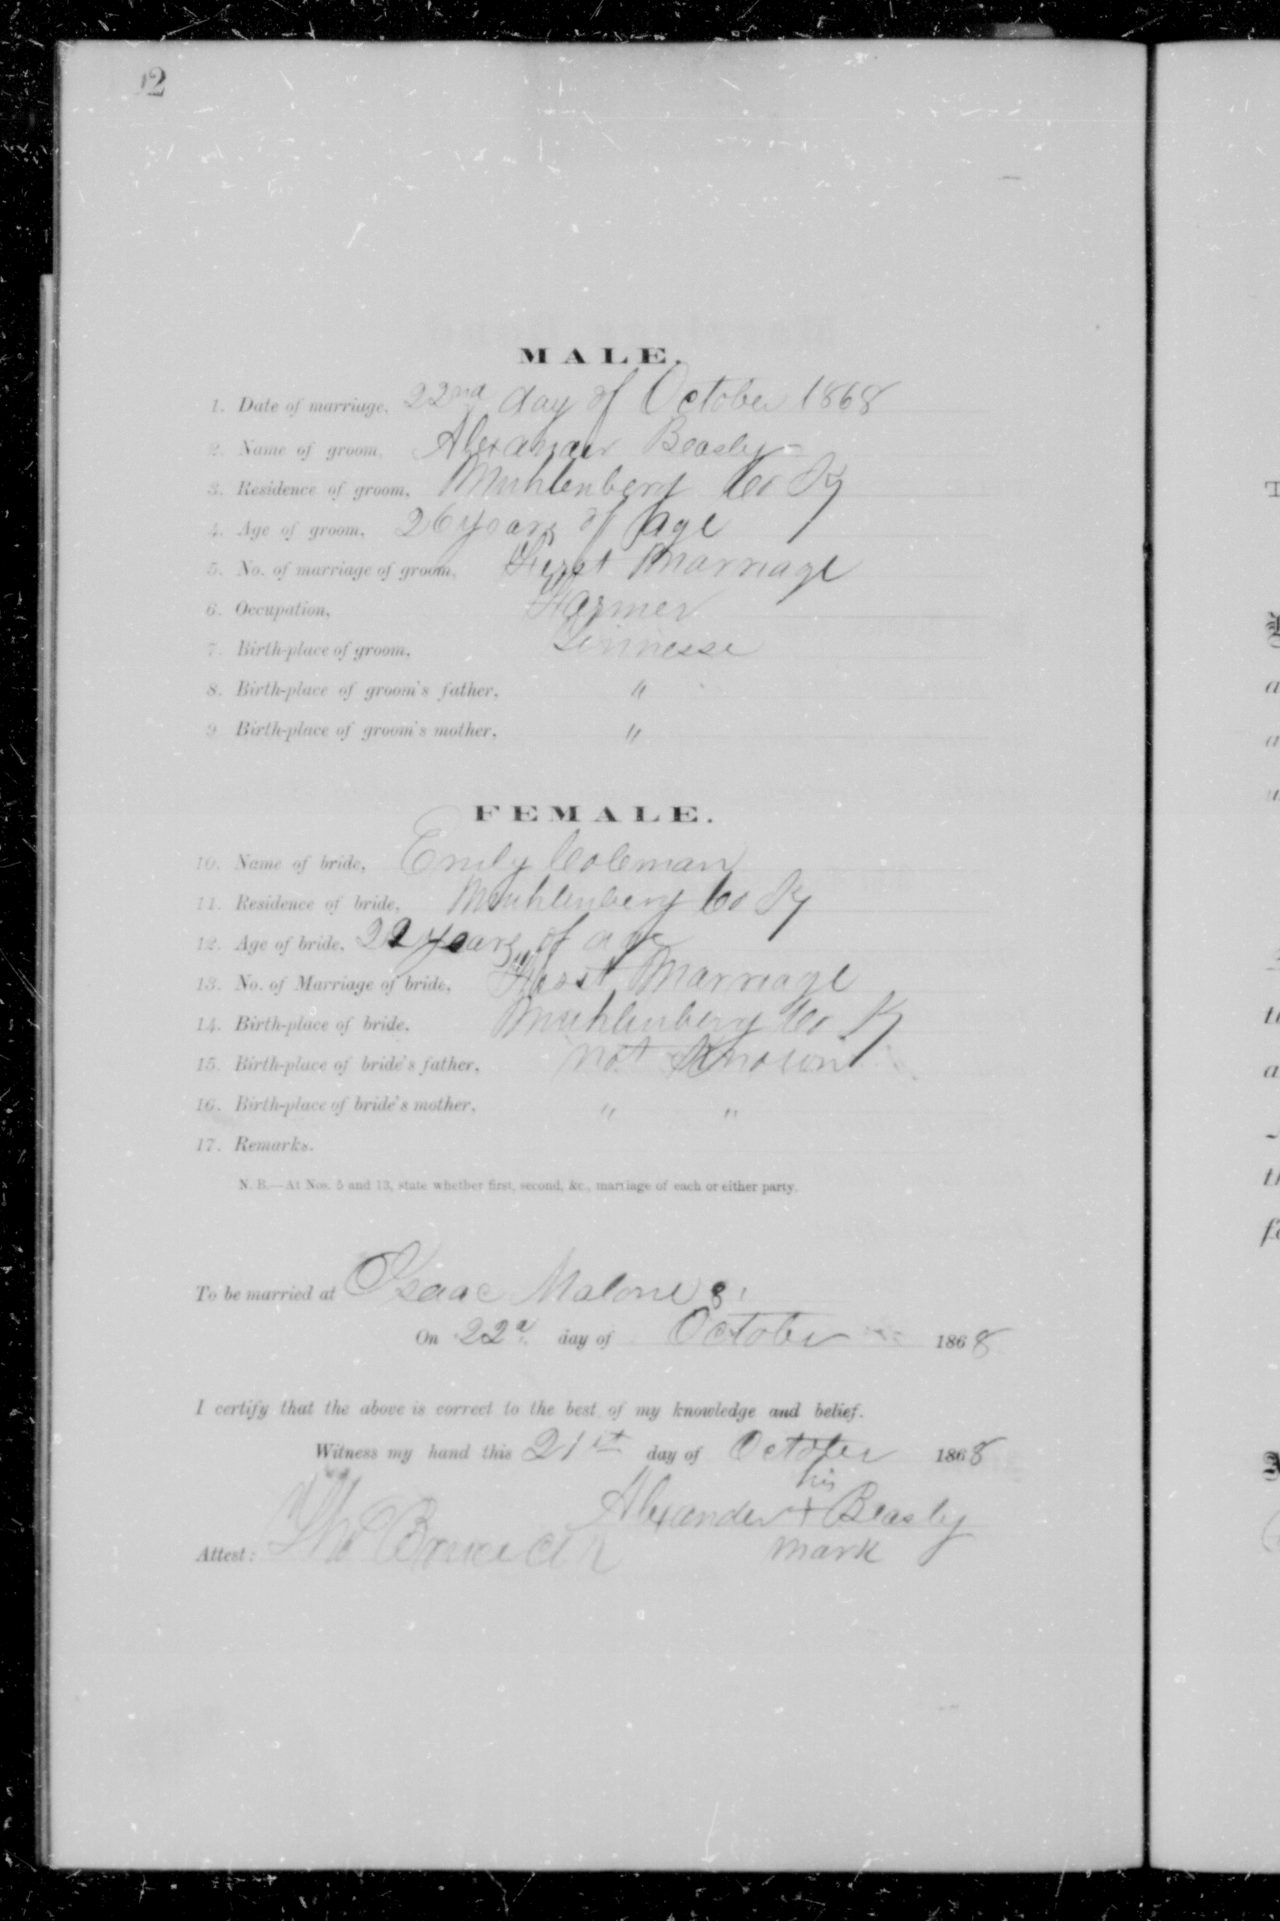 2
MALE.
1. Date of marriage, 22nd day of October 1868
2. Name of groom, Alexander Beasley
3. Residence of groom, Muhlenberg Co Ky
4. Age of groom, 26 years of age
5. No. of marriage of groom, First Marriage
6. Occupation, Farmer
7. Birth-place of groom, Tennesse
8. Birth-place of groom's father, "
9. Birth-place of groom's mother, "
FEMALE.
10. Name of bride, Emily Coleman
11. Residence of bride, Muhlenberg Co Ky
12. Age of bride, years of age
13. No. of Marriage of bride, First Marriage
14. Birth-place of bride, Muhlenberg Co Ky
15. Birth-place of bride's father, not Known
16. Birth-place of bride's mother, " "
17. Remarks.
N. B.—At Nos. 5 and 13, state whether first, second, &c., marriage of each or either party.
To be married at Isaac Malones
On 22d day of October 1868
I certify that the above is correct to the best of my knowledge and belief.
Witness my hand this 21st day of October 1868
his
Alexander + Beasly
Attest: Tho mark